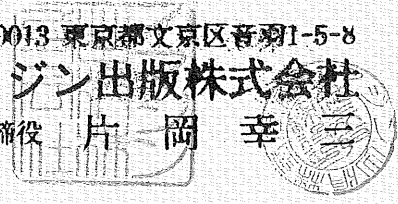 0013 東京都文京区音羽1-5-8
ジン出版株式会社
締役 片岡幸三